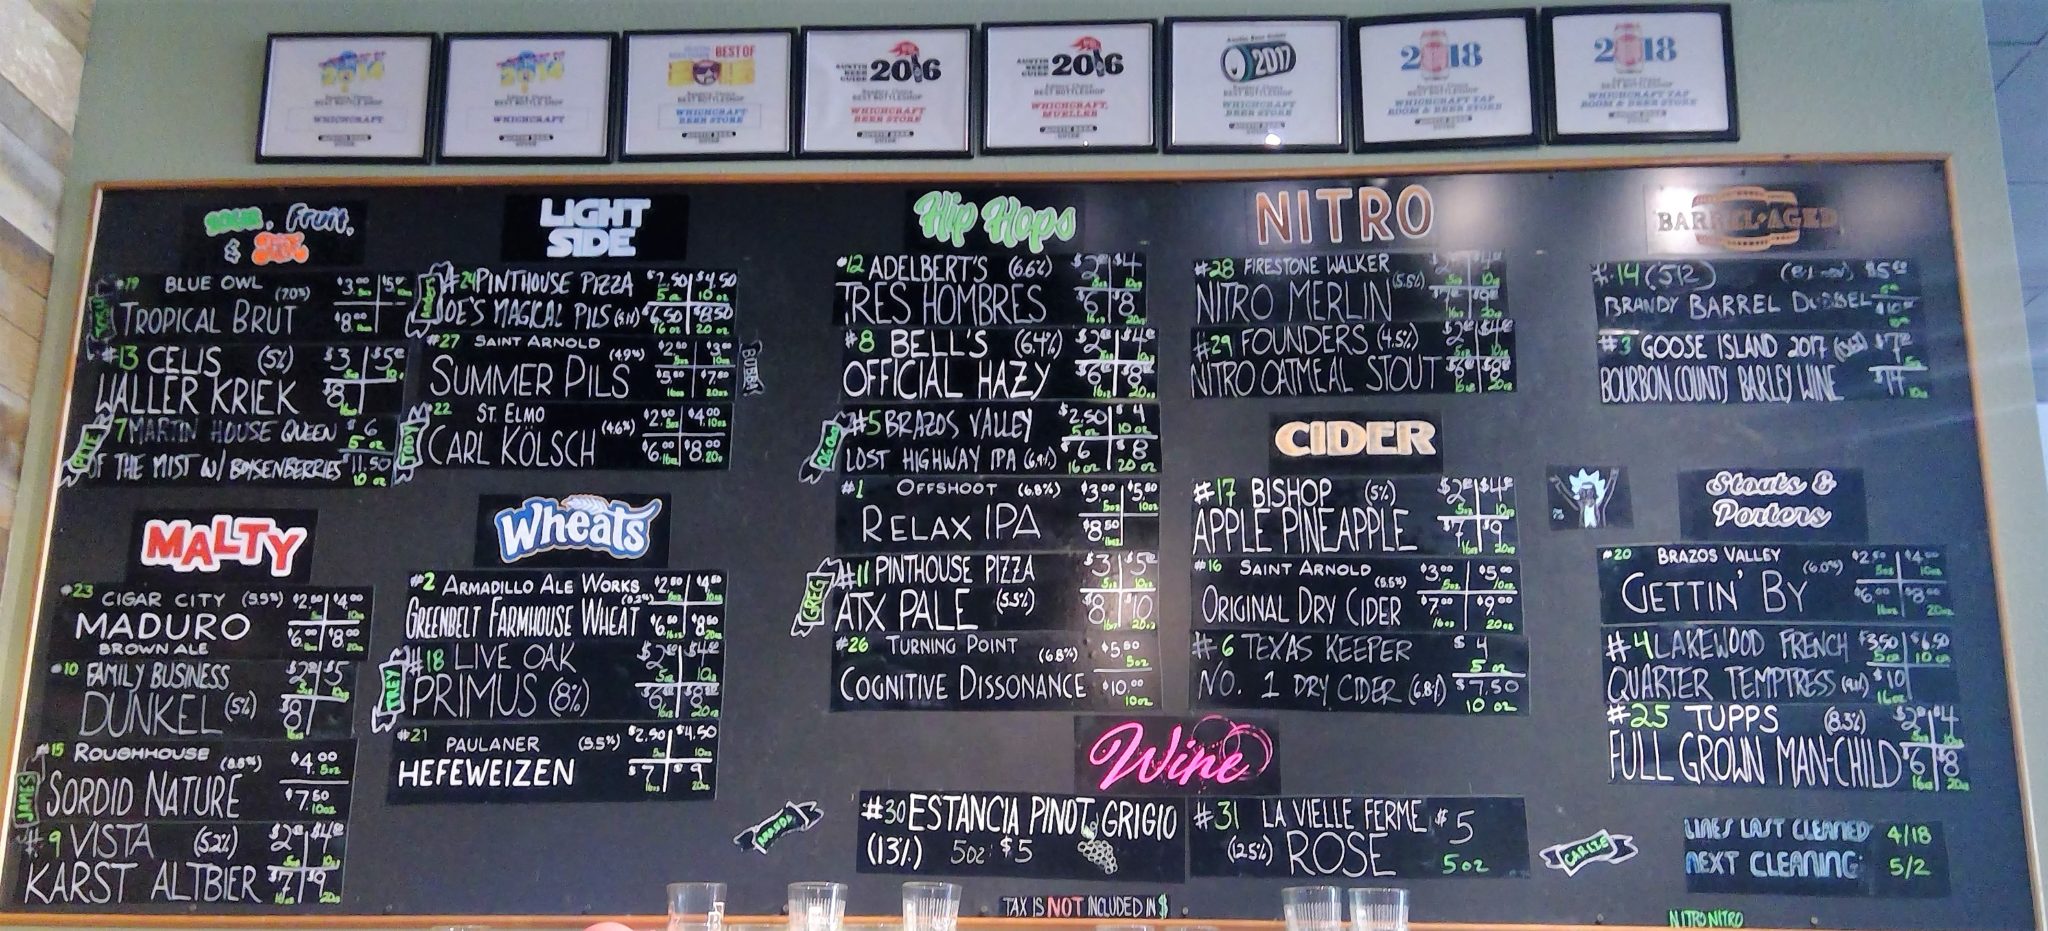 2014
BEST BOTTLE SHOP
WHICHCRAFT
AUSTIN BEER GUIDE
2014
BEST BOTTLE SHOP
WHICHCRAFT
AUSTIN BEER GUIDE
BEST OF
BEST BOTTLESHOP
WHICHCRAFT
BEER STORE
AUSTIN BEER GUIDE
AUSTIN BEER GUIDE 2016
BEST BOTTLESHOP
WHICHCRAFT
BEER STORE
AUSTIN BEER GUIDE
AUSTIN BEER GUIDE 2016
BEST BOTTLESHOP
WHICHCRAFT,
MUELLER
AUSTIN BEER GUIDE
Austin Beer Guide
2017
BEST BOTTLESHOP
WHICHCRAFT
BEER STORE
AUSTIN BEER GUIDE
2018
BEST BOTTLESHOP
WHICHCRAFT TAP
ROOM & BEER STORE
AUSTIN BEER GUIDE
2018
BEST BOTTLESHOP
WHICHCRAFT TAP
ROOM & BEER STORE
AUSTIN BEER GUIDE
SOUR, Fruit,
&
#19 BLUE OWL (7.0%) $3.00 5oz
TROPICAL BRUT $8.00
JOSH
#13 CELIS (5%) $3 $5
WALLER KRIEK $8
#7 MARTIN HOUSE QUEEN $6 5 oz
OF THE MIST W/ BOYSENBERRIES $11.50 10 oz
MALTY
#23 CIGAR CITY (5.5%) $2.50 $4.00
MADURO $6.00 $8.00
BROWN ALE
#10 FAMILY BUSINESS $5
DUNKEL (5%) $8
#15 ROUGHHOUSE (8.8%) $4.00 5oz
SORDID NATURE $7.50 10oz
JAMES
#9 VISTA (5.2%)
KARST ALTBIER $7 $9
LIGHT
SIDE
#24 PINTHOUSE PIZZA $2.50 $4.50
5 oz 10 oz
JOE'S MAGICAL PILS $6.50 $8.50
16 oz 20 oz
#27 SAINT ARNOLD (4.9%)
SUMMER PILS
BUBBA
#22 ST. ELMO (4.6%) $2.50 $4.00
CARL KÖLSCH $6.00 $8.00
JODY
Wheats
#2 ARMADILLO ALE WORKS $2.50 $4.50
GREENBELT FARMHOUSE WHEAT $6.50 $8.50
#18 LIVE OAK
PRIMUS (8%)
TREY
#21 PAULANER (5.5%) $2.50 $4.50
HEFEWEIZEN $7 $9
Hip Hops
#12 ADELBERT'S (6.6%) $2 $4
TRES HOMBRES $6 $8
#8 BELL'S (6.4%)
OFFICIAL HAZY
#5 BRAZOS VALLEY $2.50 $4
5 oz 10 oz
LOST HIGHWAY IPA (6.9%) $6 $8
16 oz 20 oz
#1 OFFSHOOT (6.8%) $3.00 $5.50
RELAX IPA $8.50
#11 PINTHOUSE PIZZA $3 $5
ATX PALE (5.5%) $8 $10
GREG
#26 TURNING POINT (6.8%) $5.50 5oz
COGNITIVE DISSONANCE $10.00 10oz
NITRO
#28 FIRESTONE WALKER (5.5%)
NITRO MERLIN
#29 FOUNDERS (4.5%)
NITRO OATMEAL STOUT
CIDER
#17 BISHOP (5%)
APPLE PINEAPPLE $7 $9
#16 SAINT ARNOLD (5.5%) $3.00 $5.00
ORIGINAL DRY CIDER $7.00 $9.00
#6 TEXAS KEEPER $4 5 oz
NO. 1 DRY CIDER (6.8%) $7.50 10 oz
Wine
#30 ESTANCIA PINOT GRIGIO
(13%) 5oz: $5
#31 LA VIELLE FERME $5
(12.5%) ROSE 5oz
AMANDA
CARLIE
BARREL·AGED
#14 (512)
BRANDY BARREL DUBBEL
#3 GOOSE ISLAND 2017
BOURBON COUNTY BARLEY WINE
Stouts &
Porters
#20 BRAZOS VALLEY (6.0%) $2.50 $4.00
GETTIN' BY $6.00 $8.00
#4 LAKEWOOD FRENCH $3.50 $6.50
5 oz 10 oz
QUARTER TEMPTRESS (9.1%) $10
16 oz
#25 TUPPS (8.3%) $2 $4
FULL GROWN MAN-CHILD $6 $8
LINES LAST CLEANED: 4/18
NEXT CLEANING: 5/2
TAX IS NOT INCLUDED IN $
NITRO NITRO